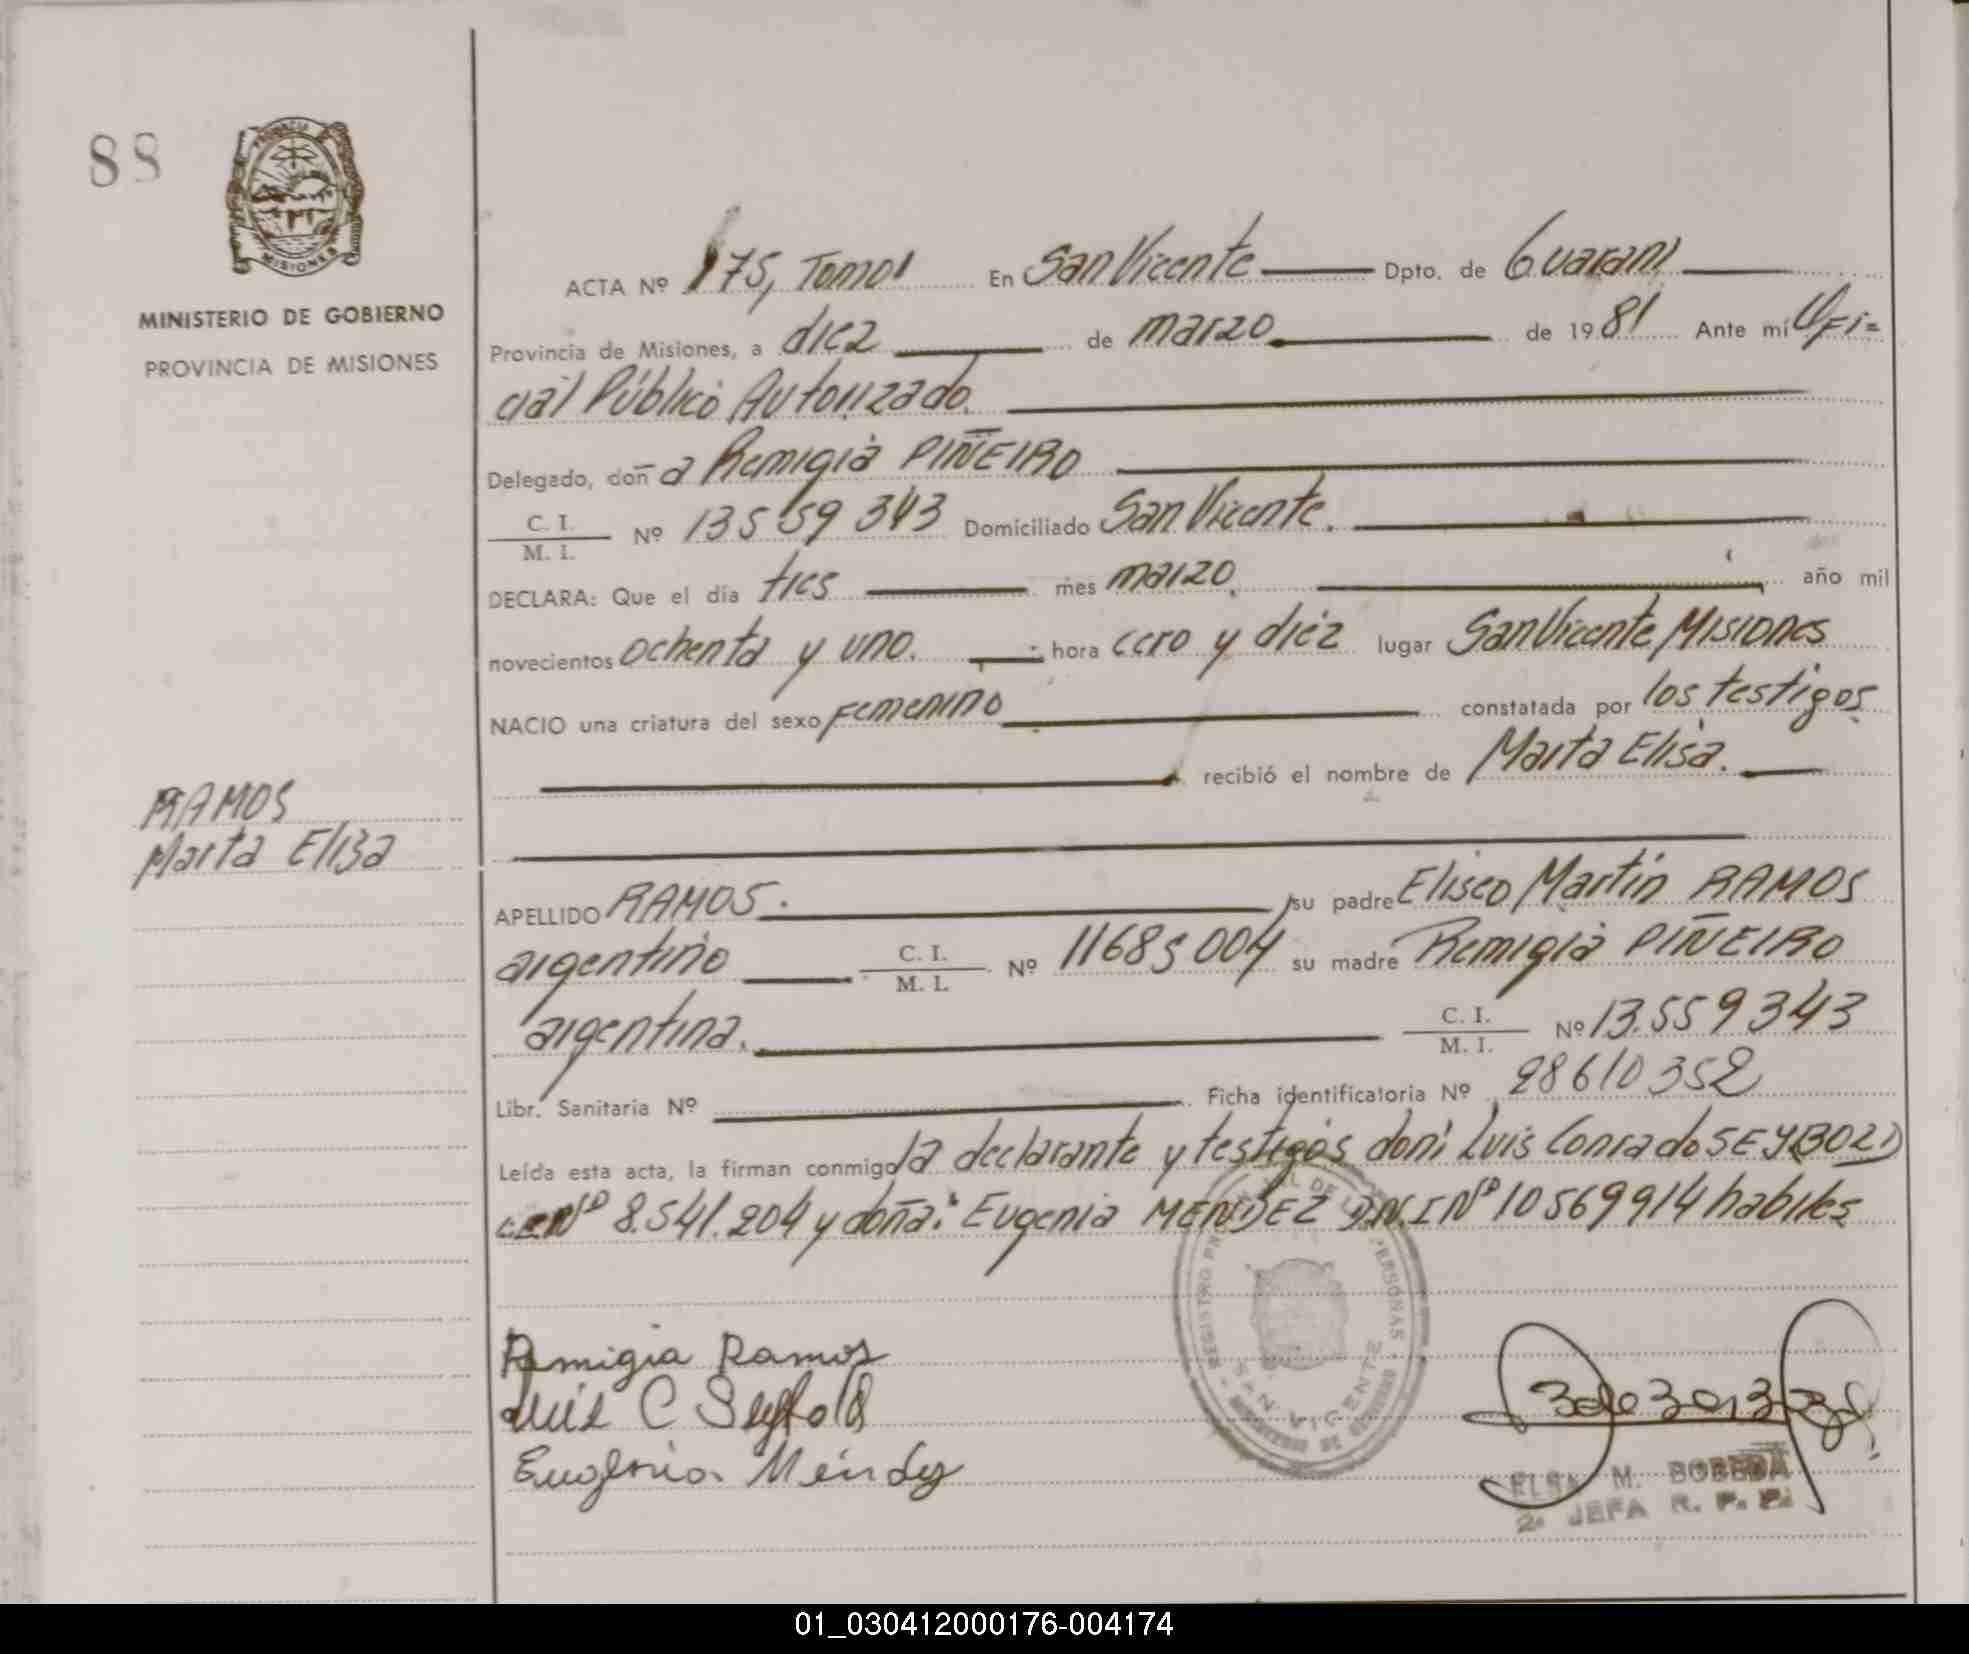 88
PROVINCIA
MISIONES
MINISTERIO DE GOBIERNO
PROVINCIA DE MISIONES
ACTA Nº 175, Tomo I En San Vicente Dpto. de Guarani
Provincia de Misiones, a diez de marzo de 1981 Ante mí Ofi=
cial Público Autorizado
Delegado, doña Remigia PIÑEIRO
C. I.
M. I. Nº 13559343 Domiciliado San Vicente.
DECLARA: Que el día tres mes marzo, año mil
novecientos ochenta y uno. hora cero y diez lugar San Vicente Misiones
NACIO una criatura del sexo Femenino constatada por los testigos
recibió el nombre de Marta Elisa.
RAMOS
Marta Eliza
APELLIDO RAMOS. su padre Eliseo Martín RAMOS
argentino C. I.
M. I. Nº 11685004 su madre Remigia PIÑEIRO
argentina. C. I.
M. I. Nº 13.559343
Libr. Sanitaria Nº Ficha identificatoria Nº 28610352
Leída esta acta, la firman conmigo la declarante y testigos don: Luis Conrado SEYBOLD
Nº 8.541.204 y doña: Eugenia MENDEZ D.N.I Nº 10569914 habiles
REGISTRO PROVINCIAL DE LAS PERSONAS
SAN VICENTE
MINISTERIO DE GOBIERNO
Remigia Ramos
Luis C Seybold
Eugenia Méndez
ELSA M. BOBEDA
2º JEFA R. P. P.
01_030412000176-004174